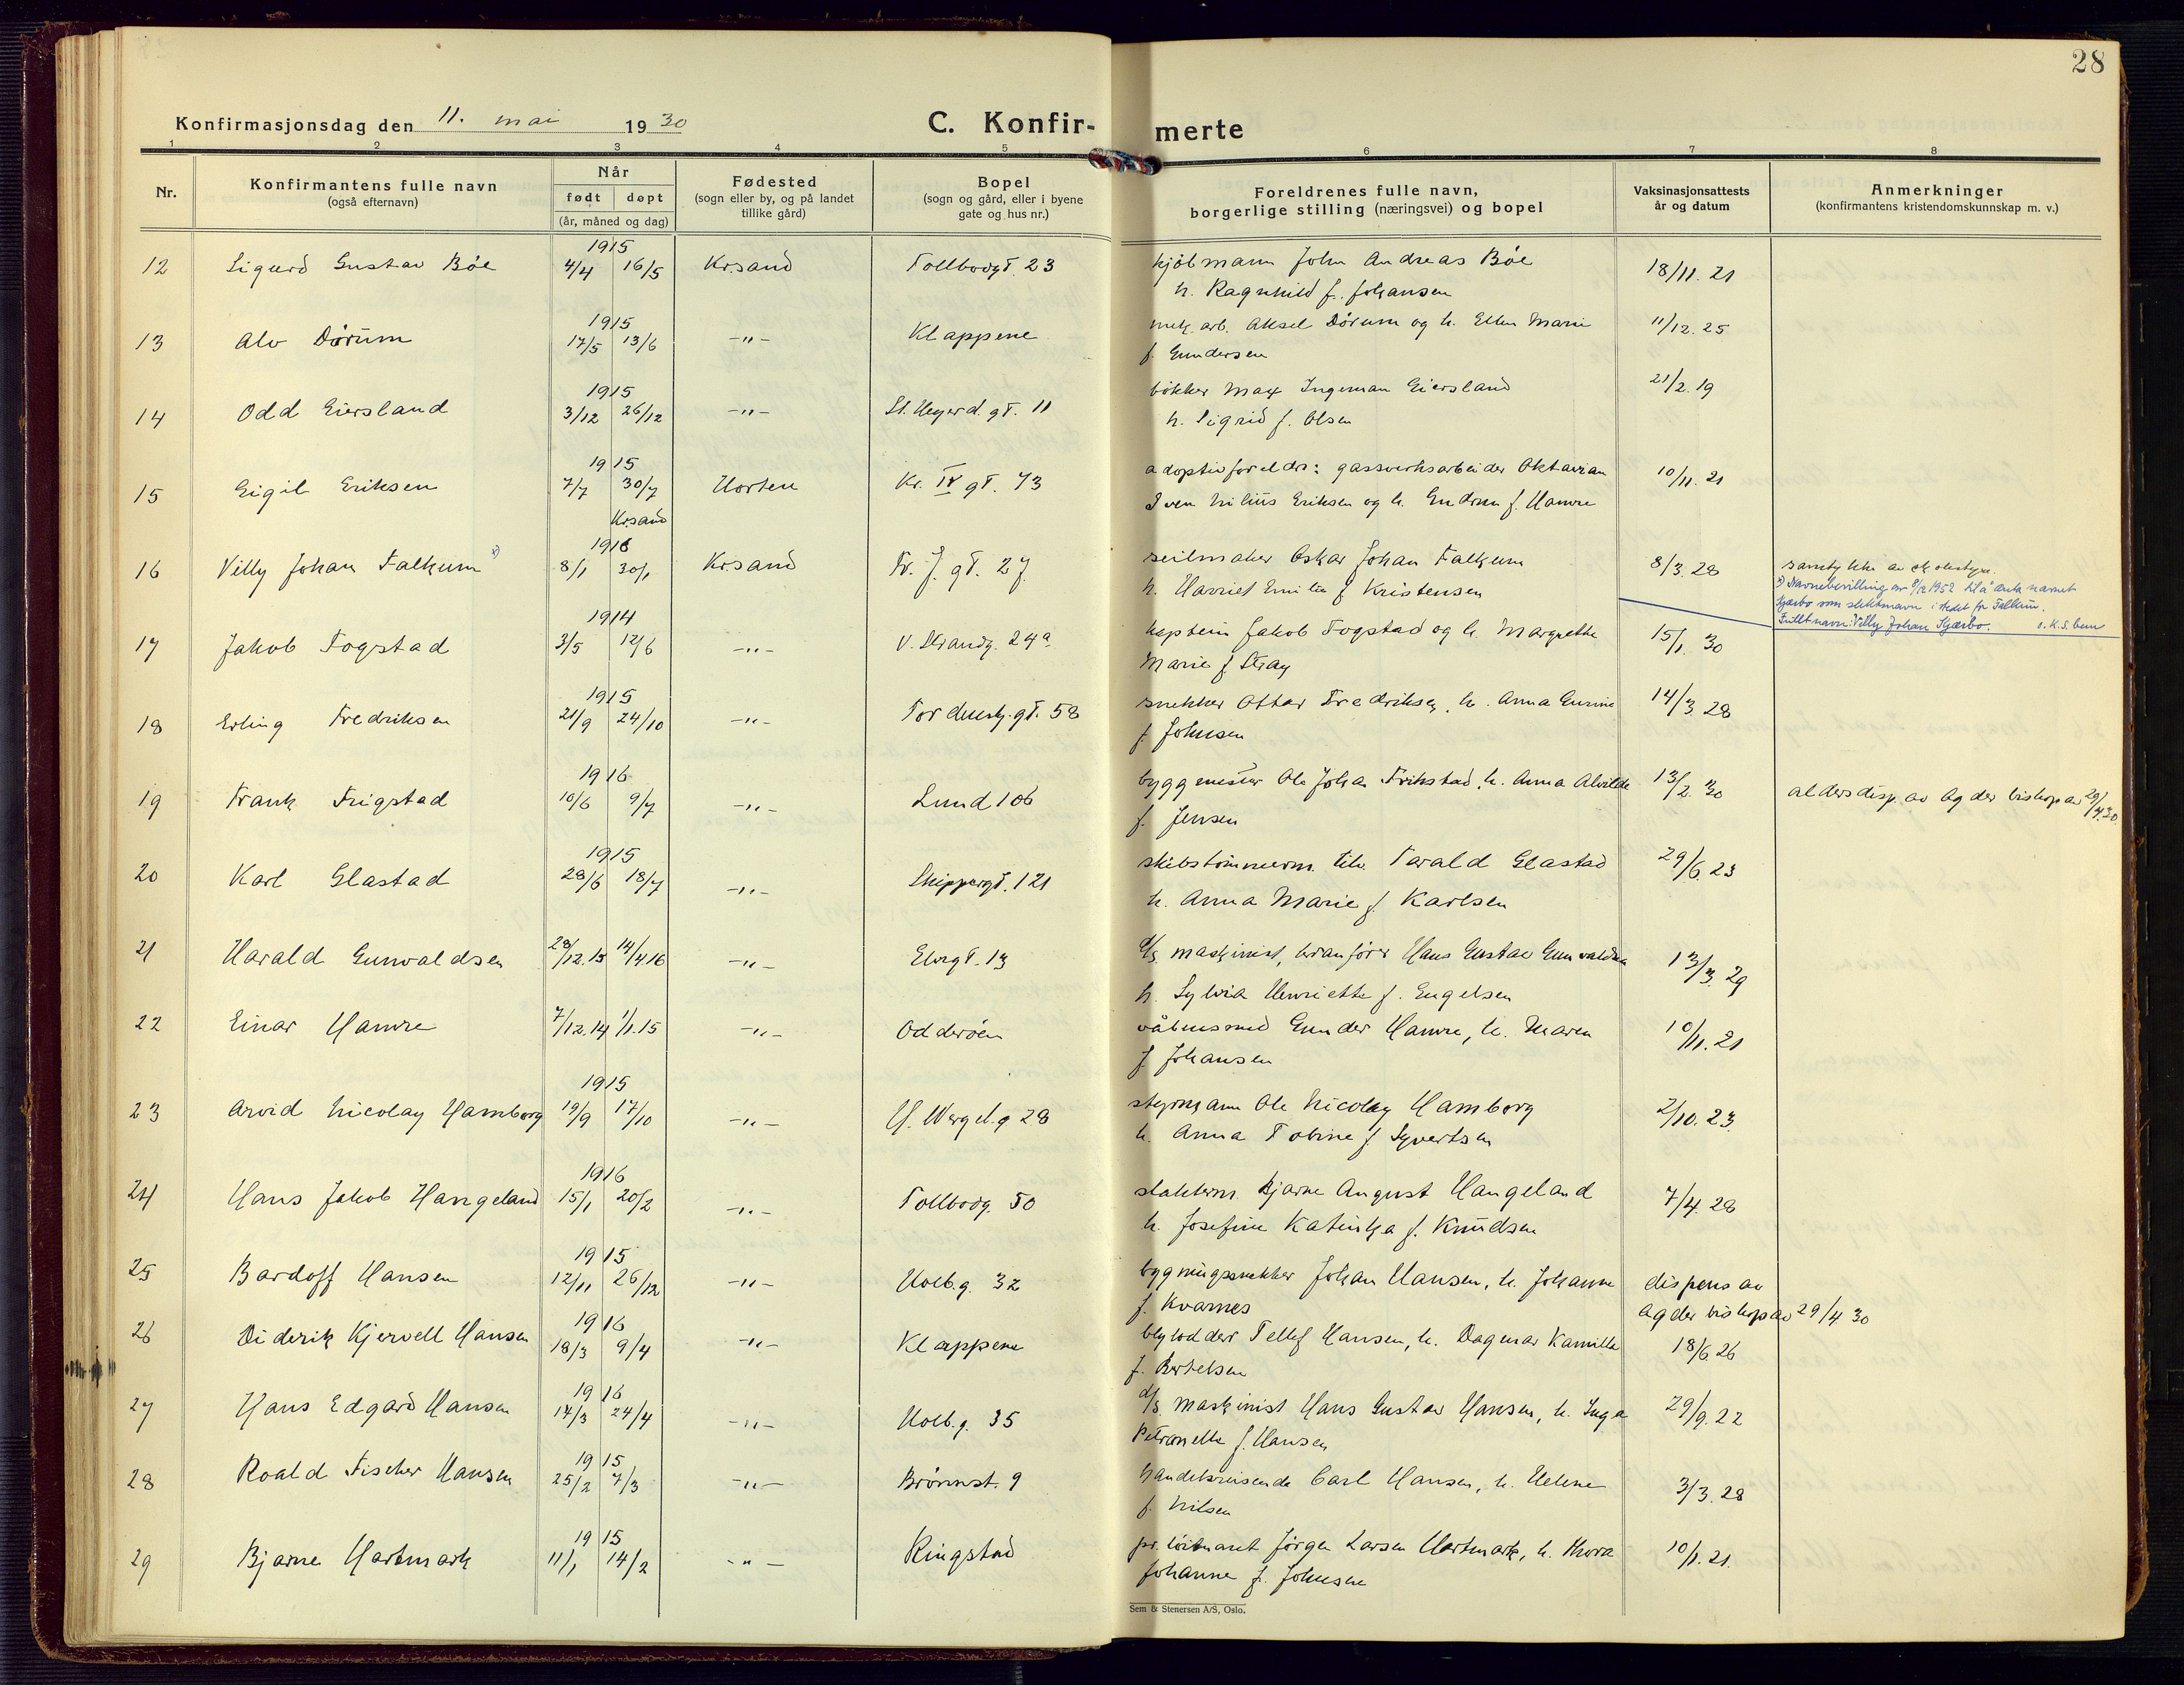 28
Konfirmasjonsdag den 11. mai 1930
C. Konfir-merte
1 2 3 4 5 6 7 8
Nr.
Konfirmantens fulle navn
(også efternavn)
Når
født døpt
(år, måned og dag)
Fødested
(sogn eller by, og på landet
tillike gård)
Bopel
(sogn og gård, eller i byene
gate og hus nr.)
Foreldrenes fulle navn,
borgerlige stilling (næringsvei) og bopel
Vaksinasjonsattests
år og datum
Anmerkninger
(konfirmantens kristendomskunnskap m. v.)
1915
12 Sigurd Gustav Bøe 4/4 16/5 Krsand Tollbodgt. 23 kjøbmann John Andreas Bøe 18/11. 21
h. Ragnhild f. Johansen
1915
13 Alv Dørum 17/5 13/6 -"- Klappene mek. arb. Aksel Dørum og h. Ellen Marie 11/12. 25
f. Gundersen
1915
14 Odd Eiersland 3/12 26/12 -"- gt. 11 bøkker Max Ingeman Eiersland 21/2. 19
h. Sigrid f. Olsen
1915
15 Eigil Eriksen 7/7 30/7 Horten Kr. IV gt. 73 adoptivforeldre: gassverksarbeider Oktavian 10/11. 21
Krsand
Sven Nilius Eriksen og h. Gudrun f. Hamre
1916
16 Villy Johan Falkum x) 8/1 30/1 Krsand Fr. J. gt. 27 seilmaker Oskar Johan Falkum 8/3. 28 samtykke av
h. Harriet Emilie f. Kristensen
x) Navnebevilling av 9/12 1952 til å anta navnet
Kjærbo som slektsnavn i stedet for Falkum.
Fullt navn: Villy Johan Kjærbo.
1914
17 Jakob Fogstad 3/5 12/6 -"- V. Strandg. 24a kaptein Jakob Fogstad og h. Margrethe 15/1. 30
Marie f. Stray
1915
18 Erling Fredriksen 21/9 24/10 -"- Tordenskj. gt. 58 snekker Ottar Fredriksen, h. Anna Gurine 14/3. 28
f. Johnsen
1916
19 Frank Frigstad 10/6 9/7 -"- Lund 106 byggmester Ole Johan Frikstad, h. Anna Alvilde 13/2. 30 aldersdisp. av Agder biskop av 29/4. 30
f. Jensen
1915
20 Karl Glastad 28/6 18/7 -"- Skippergt. 121 skibstømmerm. Tarald Glastad 29/6. 23
h. Anna Marie f. Karlsen
21 Harald Gunvaldsen 28/12.15 14/4.16 -"- Elvegt. 13 d/s maskinist, kranfører Hans Gustav Gunvaldsen 13/3. 29
h. Sylvia Henriette f. Engelsen
22 Einar Hamre 7/12.14 1/1.15 -"- Odderøen våbensmed Gunder Hamre, h. Maren 10/11. 21
f. Johansen
1915
23 Arvid Nicolay Hamborg 19/9 17/10 -"- H. Wergel. g 28 styrmann Ole Nicolay Hamborg 2/10. 23
h. Anna Tobine f. Syvertsen
1916
24 Hans Jakob Hangeland 15/1 20/2 -"- Tollbodg. 50 slakterm. Bjarne August Hangeland 7/4. 28
h. Josefine Katinka f. Knudsen
1915
25 Bardoff Hansen 12/11 26/12 -"- Holb.g. 32 bygningssnekker Johan Hansen, h. Johanne dispens av
f. Kvarnes Agder biskop av 29/4 30
1916
26 Diderik Kjervell Hansen 18/3 9/4 -"- Klappene blylodder Tellef Hansen, h. Dagmar Kamilla 18/6. 26
f. Bertelsen
1916
27 Hans Edgard Hansen 17/3 24/4 -"- Holb.g. 35 d/s maskinist Hans Gustav Hansen, h. Inga 29/9. 22
Petronelle f. Hansen
1915
28 Roald Fischer Hansen 25/2 7/3 -"- Brønnst. 9 handelsreisende Carl Hansen, h. Helene 3/3. 28
f. Nilsen
1915
29 Bjarne Hartmark 11/1 14/2 -"- Ringstad pr. løitnant Jørgen Larsen Hartmark, h. Thora 10/1. 21.
Johanne f. Johnsen
Sem & Stenersen A/S, Oslo.